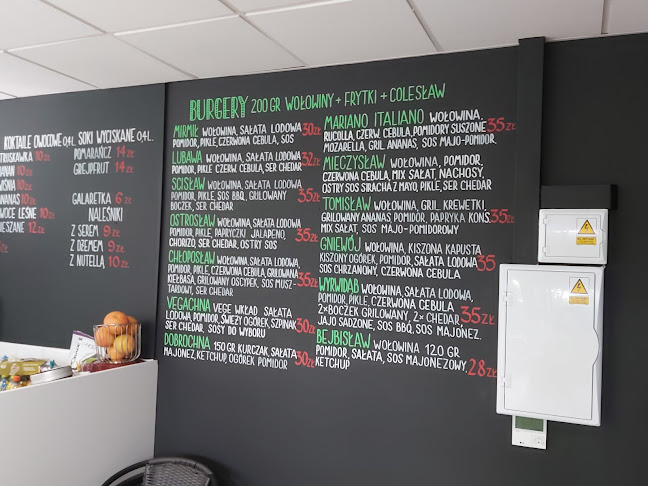 KOKTAILE OWOCOWE 0,4L.
TRUSKAWKA 10 ZŁ
10 ZŁ
10 ZŁ
ANANAS 10 ZŁ
OWOCE LEŚNE 10 ZŁ
MIESZANE 12 ZŁ
SOKI WYCISKANE 0,4L.
POMARAŃCZ 14 ZŁ
GREJPFRUT 14 ZŁ
GALARETKA 6 ZŁ
NALEŚNIKI
Z SEREM 9 ZŁ
Z DŻEMEM 9 ZŁ
Z NUTELLĄ 10 ZŁ
BURGERY 200 GR WOŁOWINY + FRYTKI + COLESŁAW
MIRMIŁ WOŁOWINA, SAŁATA LODOWA
POMIDOR, PIKLE, CZERWONA CEBULA, SOS 30 ZŁ
LUBAWA WOŁOWINA, SAŁATA LODOWA
POMIDOR PIKLE CZERWONA CEBULA, SER CHEDAR 32 ZŁ
SCISŁAW WOŁOWINA, SAŁATA LODOWA
POMIDOR, PIKLE, SOS BBQ, GRILOWANY
BOCZEK, SER CHEDAR 35 ZŁ
OSTROSŁAW WOŁOWINA, SAŁATA LODOWA
POMIDOR, PIKLE, PAPRYCZKI JALAPENO,
CHORIZO, SER CHEDAR, OSTRY SOS 35 ZŁ
CHŁOPOSŁAW WOŁOWINA, SAŁATA LODOWA,
POMIDOR, PIKLE, CZERWONA CEBULA, GRILOWANA
KIEŁBASA, GRILOWANY OSCYPEK, SOS MUSZ-
TARDOWY, SER CHEDAR 35 ZŁ
VEGACHNA VEGE WKŁAD SAŁATA
LODOWA, POMIDOR, ŚWIEŻY OGÓREK, SZPINAK
SER CHEDAR, SOSY DO WYBORU 30 ZŁ
DOBROCHNA 150 GR KURCZAK, SAŁATA
MAJONEZ, KETCHUP, OGÓREK POMIDOR 30 ZŁ
MARIANO ITALIANO WOŁOWINA,
RUCOLLA, CZERW. CEBULA, POMIDORY SUSZONE
MOZARELLA, GRIL. ANANAS, SOS MAJO-POMIDOR. 35 ZŁ
MIECZYSŁAW WOŁOWINA, POMIDOR,
CZERWONA CEBULA, MIX SAŁAT, NACHOSY,
OSTRY SOS SIRACHA Z MAYO, PIKLE, SER CHEDAR 35 ZŁ
TOMISŁAW WOŁOWINA, GRIL. KREWETKI,
GRILOWANY ANANAS, POMIDOR, PAPRYKA KONS.
MIX SAŁAT, SOS MAJO-POMIDOROWY 35 ZŁ
GNIEWÓJ WOŁOWINA, KISZONA KAPUSTA
KISZONY OGÓREK, POMIDOR, SAŁATA LODOWA
SOS CHRZANOWY, CZERWONA CEBULA 35
WYRWIDĄB WOŁOWINA, SAŁATA LODOWA,
POMIDOR, PIKLE, CZERWONA CEBULA
2×BOCZEK GRILOWANY, 2× CHEDAR,
JAJO SADZONE, SOS BBQ, SOS MAJONEZ. 35 ZŁ
BEJBISŁAW WOŁOWINA 120 GR
POMIDOR, SAŁATA, SOS MAJONEZOWY,
KETCHUP 28 ZŁ